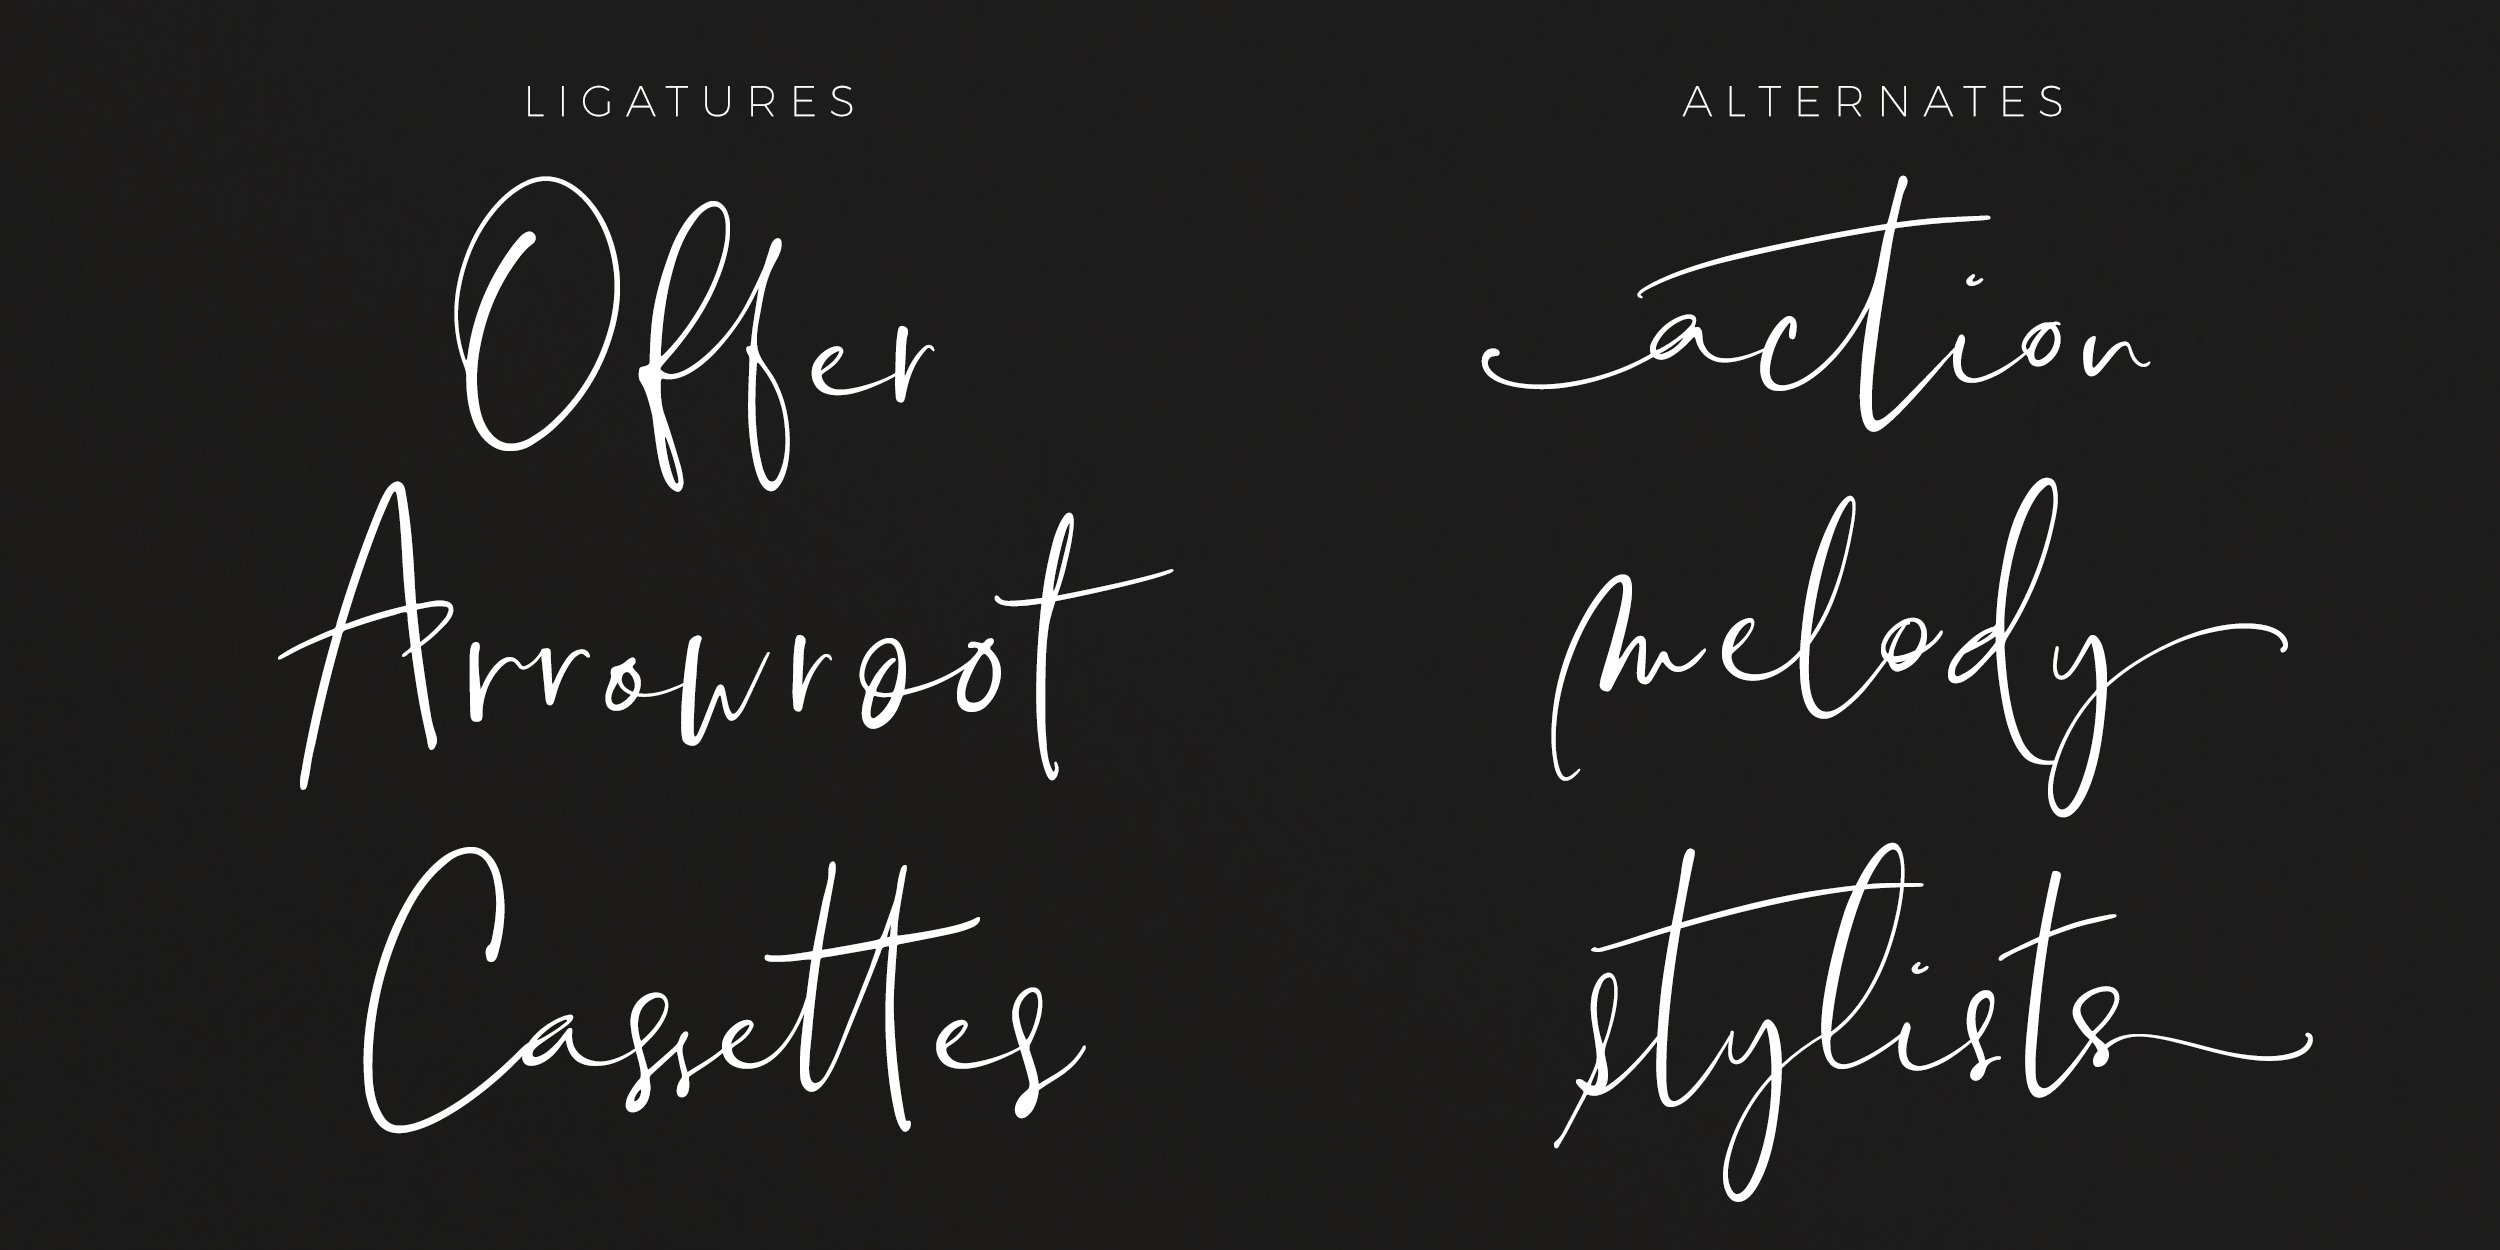 LIGATURES
Offer
Arrowroot
Casettes
ALTERNATES
action
melody
stylists